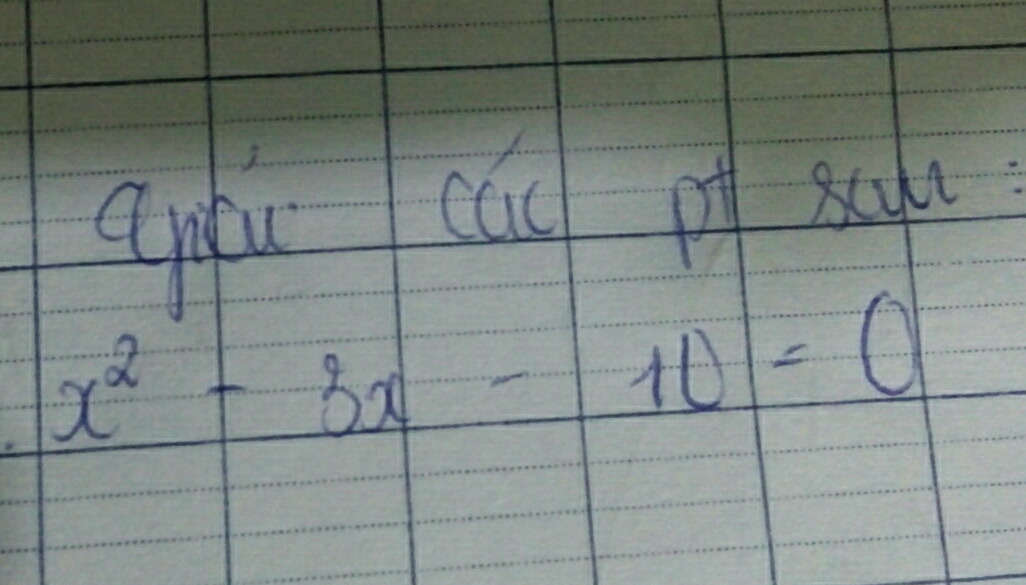 Giải các pt sau :
. x² - 3x - 10 = 0